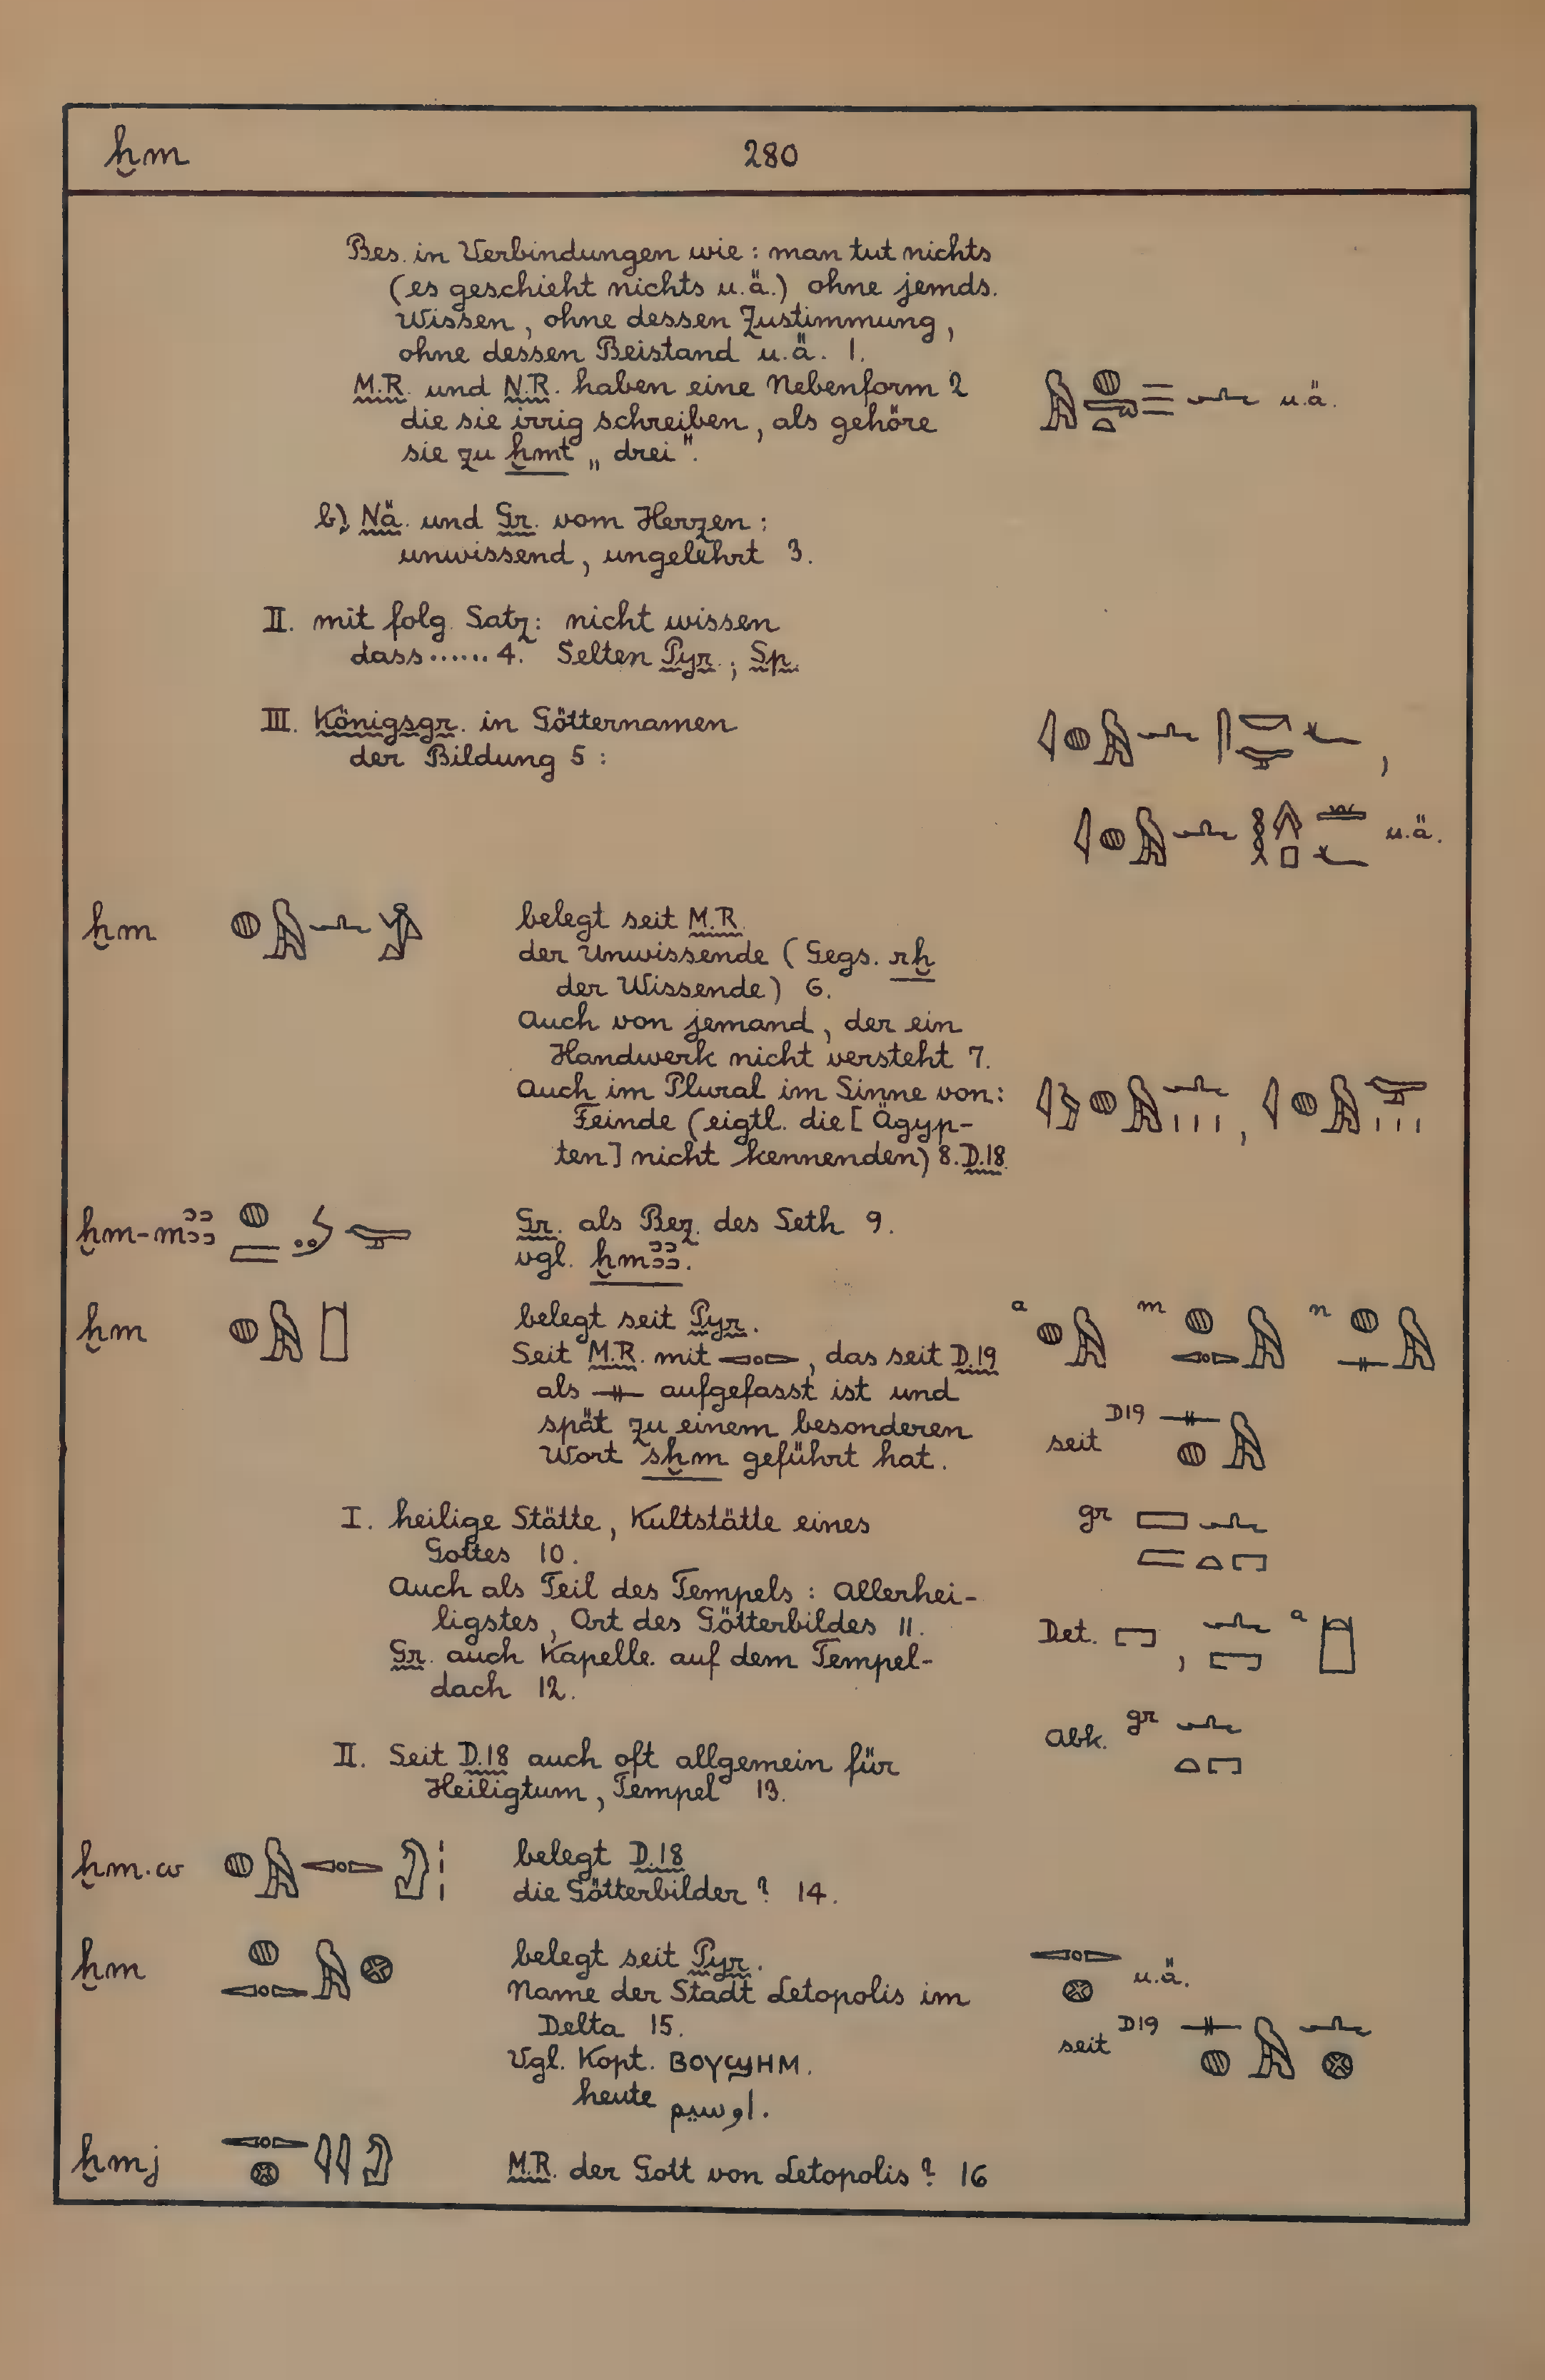 ḫm 280
Bes. in Verbindungen wie : man tut nichts
(es geschieht nichts u.ä.) ohne jemds.
Wissen, ohne dessen Zustimmung,
ohne dessen Beistand u.ä. 1.
M.R. und N.R. haben eine Nebenform 2
die sie irrig schreiben, als gehöre
sie zu ḫmt „drei“.
u.ä.
b) Nä. und Gr. vom Herzen :
unwissend, ungelehrt 3.
II. mit folg. Satz: nicht wissen
dass ...... 4. Selten Pyr.; Sp.
III. Königsgr. in Götternamen
der Bildung 5 :
,
u.ä.
ḫm belegt seit M.R.
der Unwissende (Gegs. rḫ
der Wissende) 6.
Auch von jemand, der ein
Handwerk nicht versteht 7.
Auch im Plural im Sinne von:
Feinde (eigtl. die [Ägyp-
ten] nicht kennenden) 8. D.18.
ḫm-mꜣꜣ Gr. als Bez. des Seth 9.
vgl. ḫmꜣꜣ.
ḫm belegt seit Pyr. a m n
Seit M.R. mit , das seit D.19
als aufgefasst ist und
spät zu einem besonderen
Wort sḫm geführt hat.
seit D19
I. heilige Stätte, Kultstätte eines
Gottes 10.
gr
Auch als Teil des Tempels : Allerhei-
ligstes, Ort des Götterbildes 11.
Gr. auch Kapelle auf dem Tempel-
dach 12.
Det. , a
Abk. gr
II. Seit D.18 auch oft allgemein für
Heiligtum, Tempel 13.
ḫm.w belegt D.18
die Götterbilder? 14.
ḫm belegt seit Pyr. u.ä.
Name der Stadt Letopolis im
Delta 15.
seit D19
Vgl. Kopt. ΒΟΥϢΗΜ.
heute اوسيم.
ḫmj M.R. der Gott von Letopolis? 16